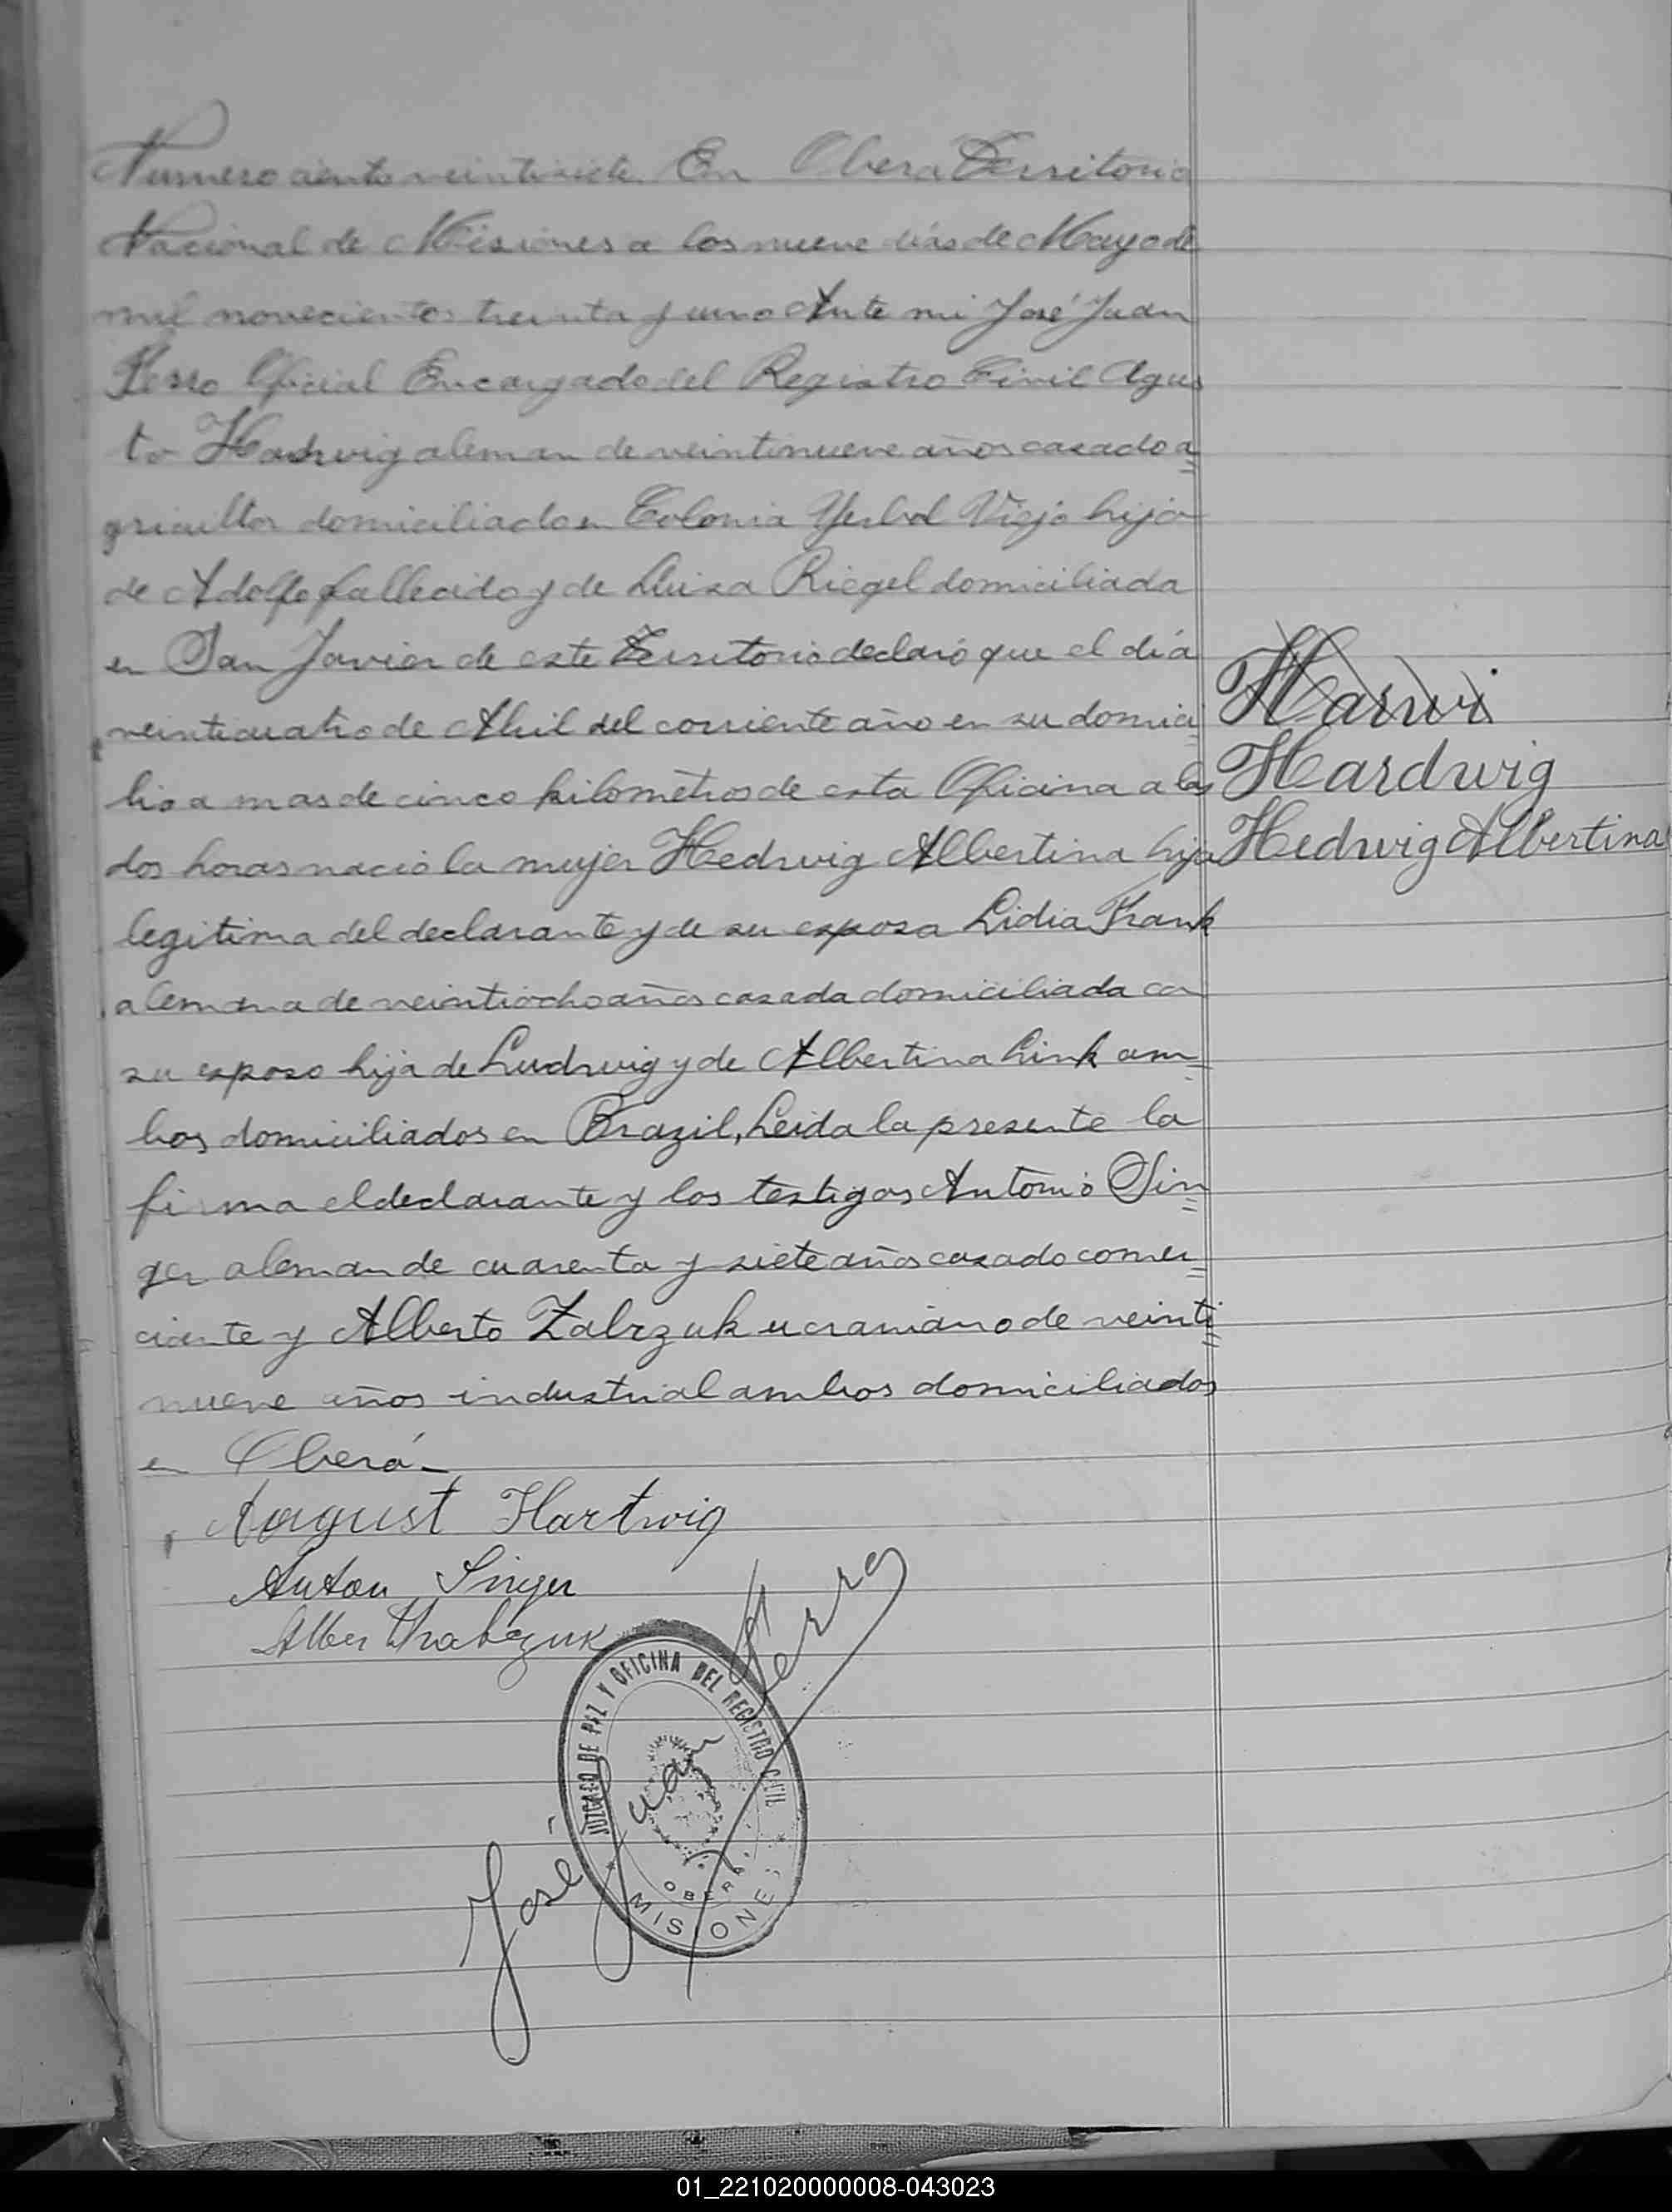 Numero ciento veintisiete. En Obera Territorio
Nacional de Misiones a los nueve dias de Mayo de
mil novecientos treinta y uno Ante mi José Juan
Ferro Oficial Encargado del Registro Civil Agus
to Hardwig aleman de veintinueve años casado a=
gricultor domiciliado en Colonia Yerbal Viejo hijo
de Adolfo fallecido y de Luisa Riegel domiciliada
en San Javier de este Territorio declaró que el día
veinticuatro de Abril del corriente año en su domici=
lio a mas de cinco kilometros de esta Oficina a las
dos horas nació la mujer Hedwig Albertina hija
legitima del declarante y de su esposa Lidia Frank
alemana de veintiocho años casada domiciliada con
su esposo hija de Ludwig y de Albertina Link am=
bos domiciliados en Brazil, Leida la presente la
firma el declarante y los testigos Antonio Sin=
ger aleman de cuarenta y siete años casado comer=
ciante y Alberto Zabrzuk ucraniano de veinti=
nueve años industrial ambos domiciliados
en Oberá.-
Harwi
Hardwig
Hedwig Albertina
August Hartwig
Anton Singer
José Juan Ferro
JUZGADO DE PAZ Y OFICINA DEL REGISTRO CIVIL
OBERA
MISIONES
01_221020000008-043023